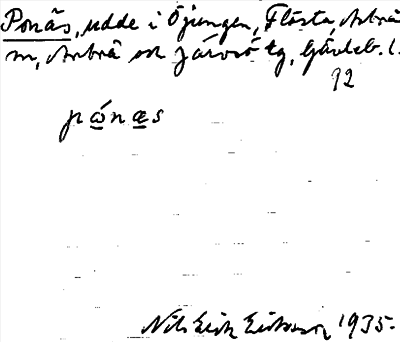 Ponäs, udde i Öjungen, Flästa, Arbrå
sn, Arbrå och Järvsö tg, Gävleb. l.
92
pónæs
Nils Erik Eriksson 1935.